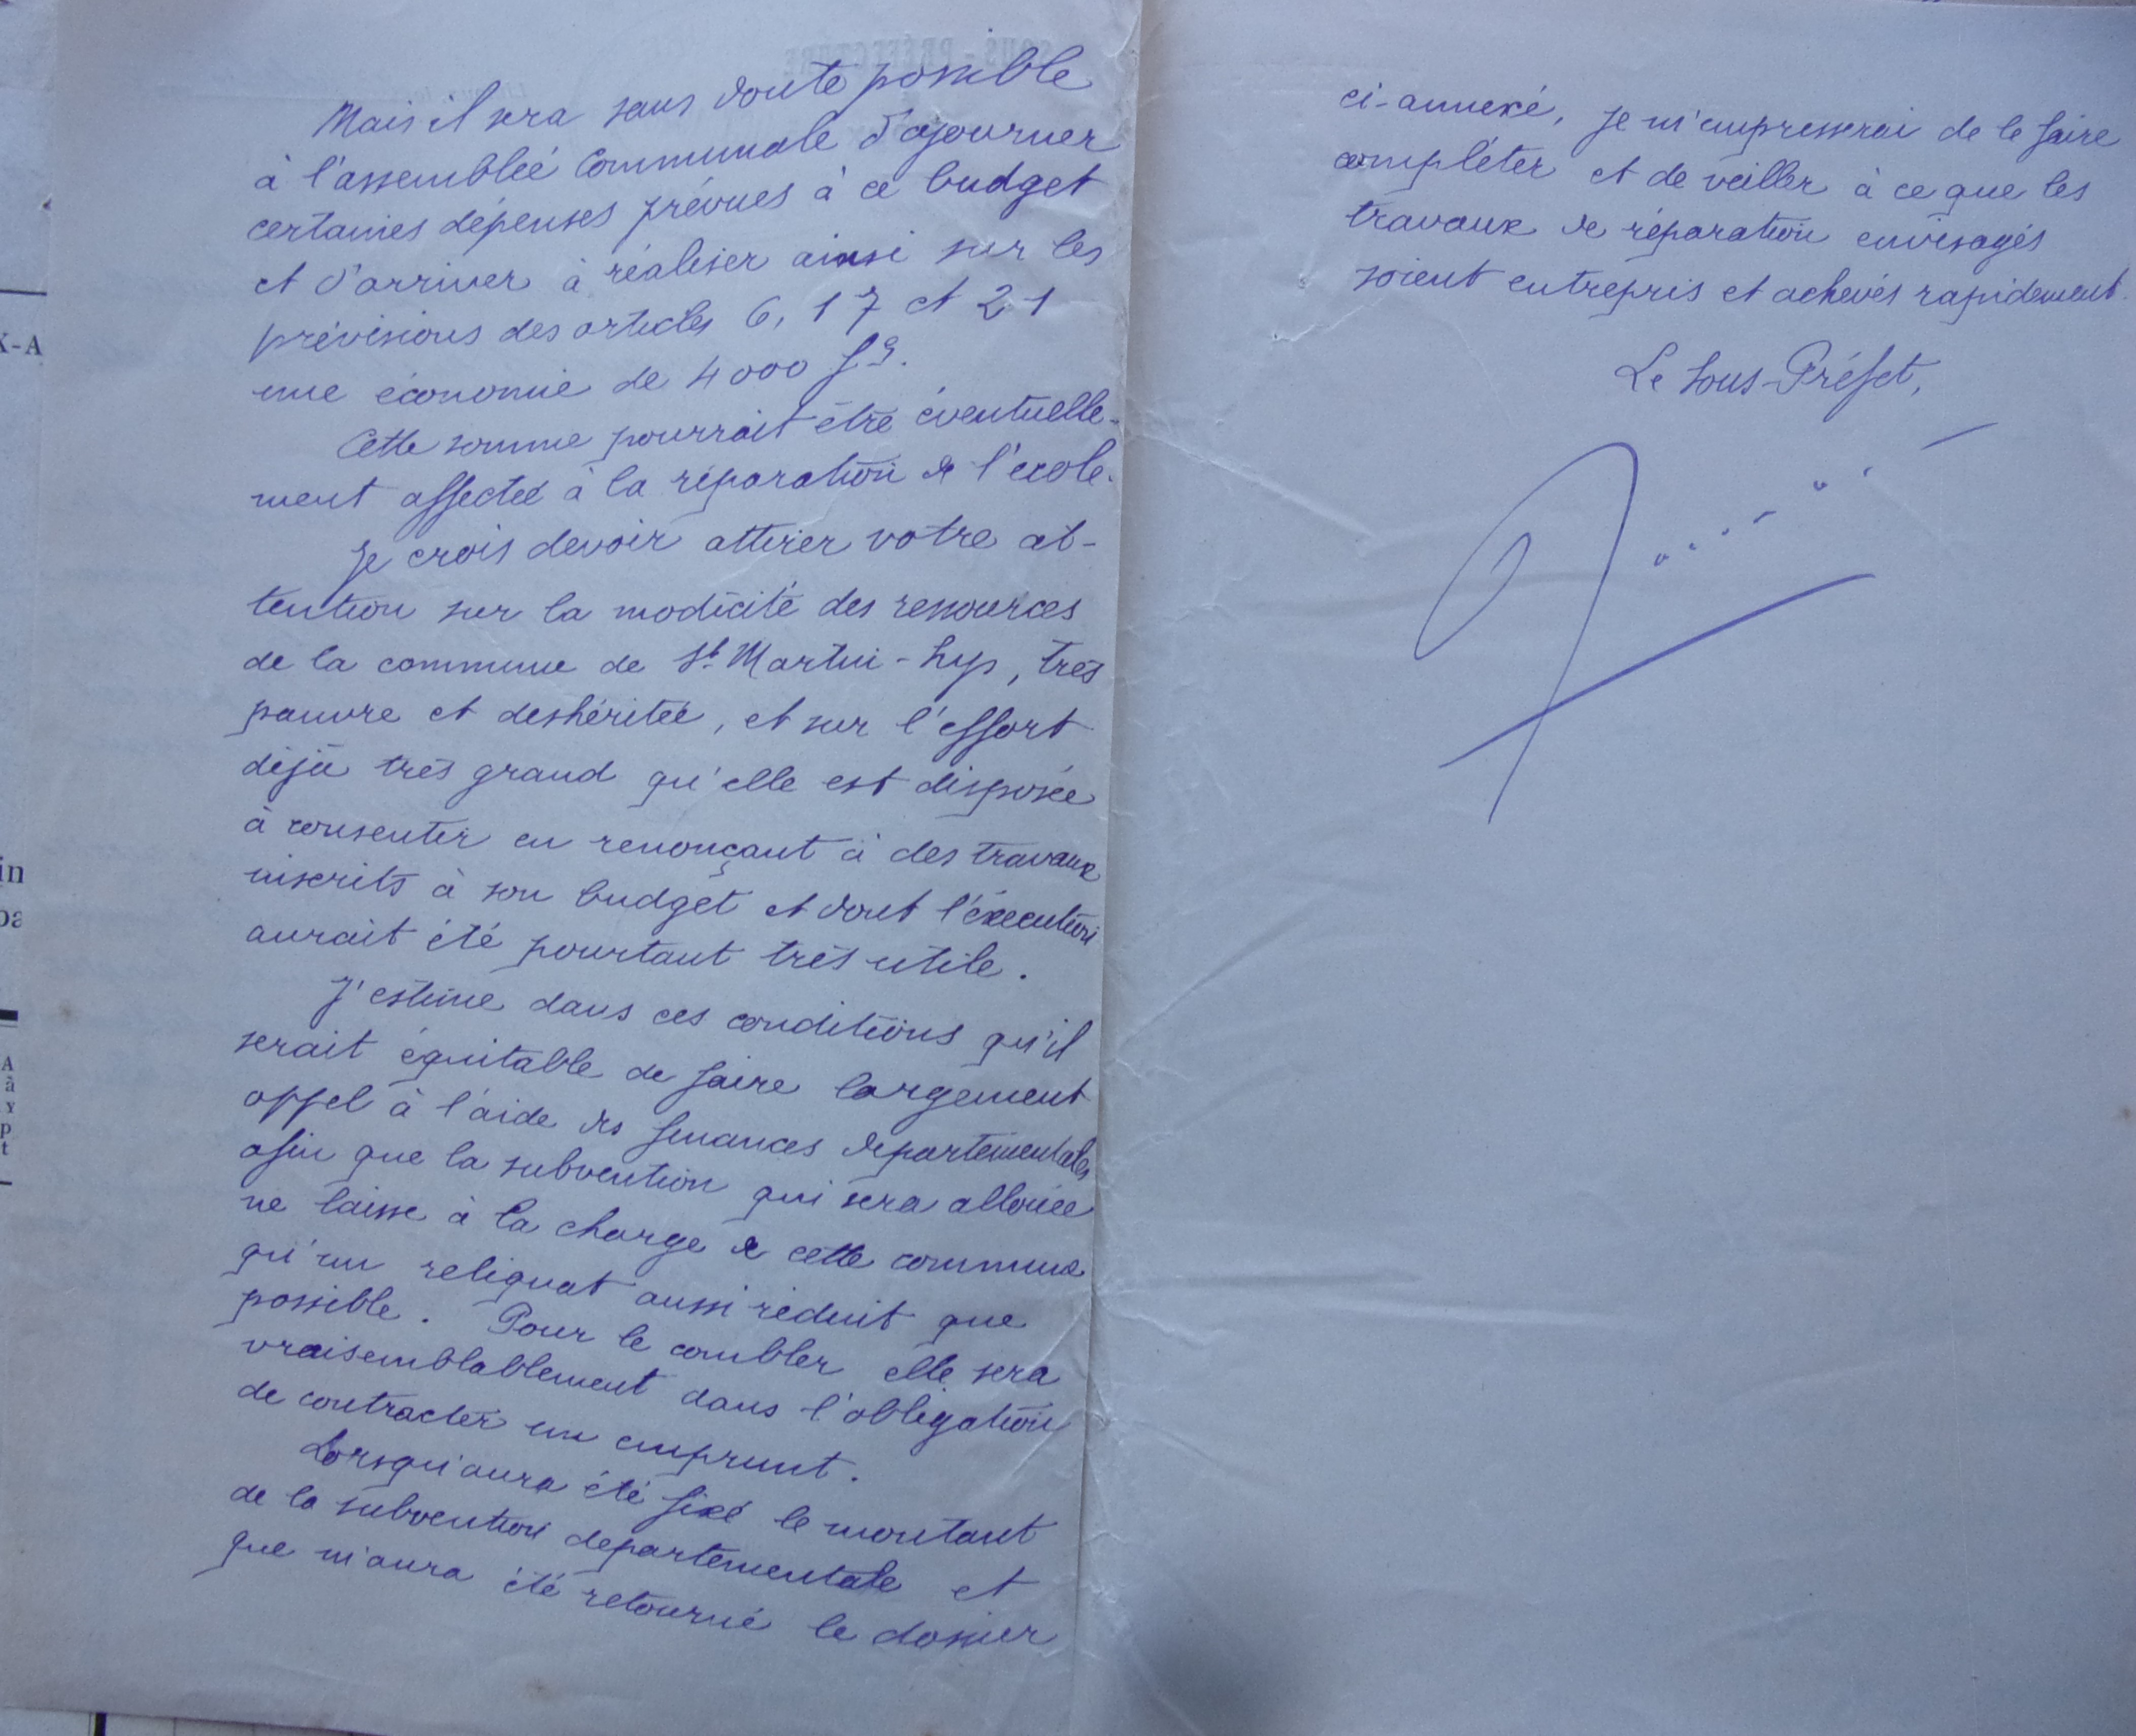 Mais il sera sans doute possible
à l'assemblée communale d'ajourner
certaines dépenses prévues à ce budget
et d'arriver à réaliser ainsi sur les
prévisions des articles 6, 17 et 21
une économie de 4000 fs.
Cette somme pourrait être éventuelle-
ment affectée à la réparation de l'école.
Je crois devoir attirer votre at-
tention sur la modicité des ressources
de la commune de St Martin-Lys, très
pauvre et deshéritée, et sur l'effort
déjà très grand qu'elle est disposée
à consentir en renonçant à des travaux
inscrits à son budget et dont l'éxecution
aurait été pourtant très utile.
J'estime dans ces conditions qu'il
serait équitable de faire largement
appel à l'aide des finances départementales
afin que la subvention qui sera allouée
ne laisse à la charge de cette commune
qu'un reliquat aussi réduit que
possible. Pour le combler elle sera
vraisemblablement dans l'obligation
de contracter un emprunt.
Lorsqu'aura été fixé le montant
de la subvention départementale et
que m'aura été retourné le dossier
ci-annexé, je m'empresserai de le faire
compléter et de veiller à ce que les
travaux de réparation envisagés
soient entrepris et achevés rapidement.
Le Sous-Préfet,
SOUS-PRÉFECTURE
X-A
in
pa
A
à
Y
p
t